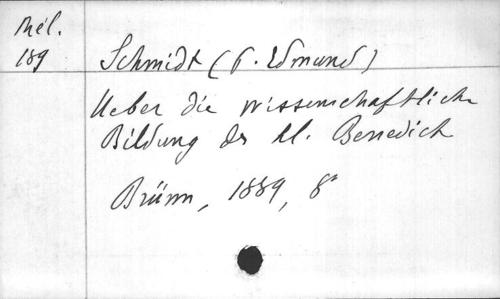 Mél.
189
Schmidt (P. Edmund)
Ueber die wissenschaftliche
Bildung des hl. Benedict
Brünn, 1889, 8°